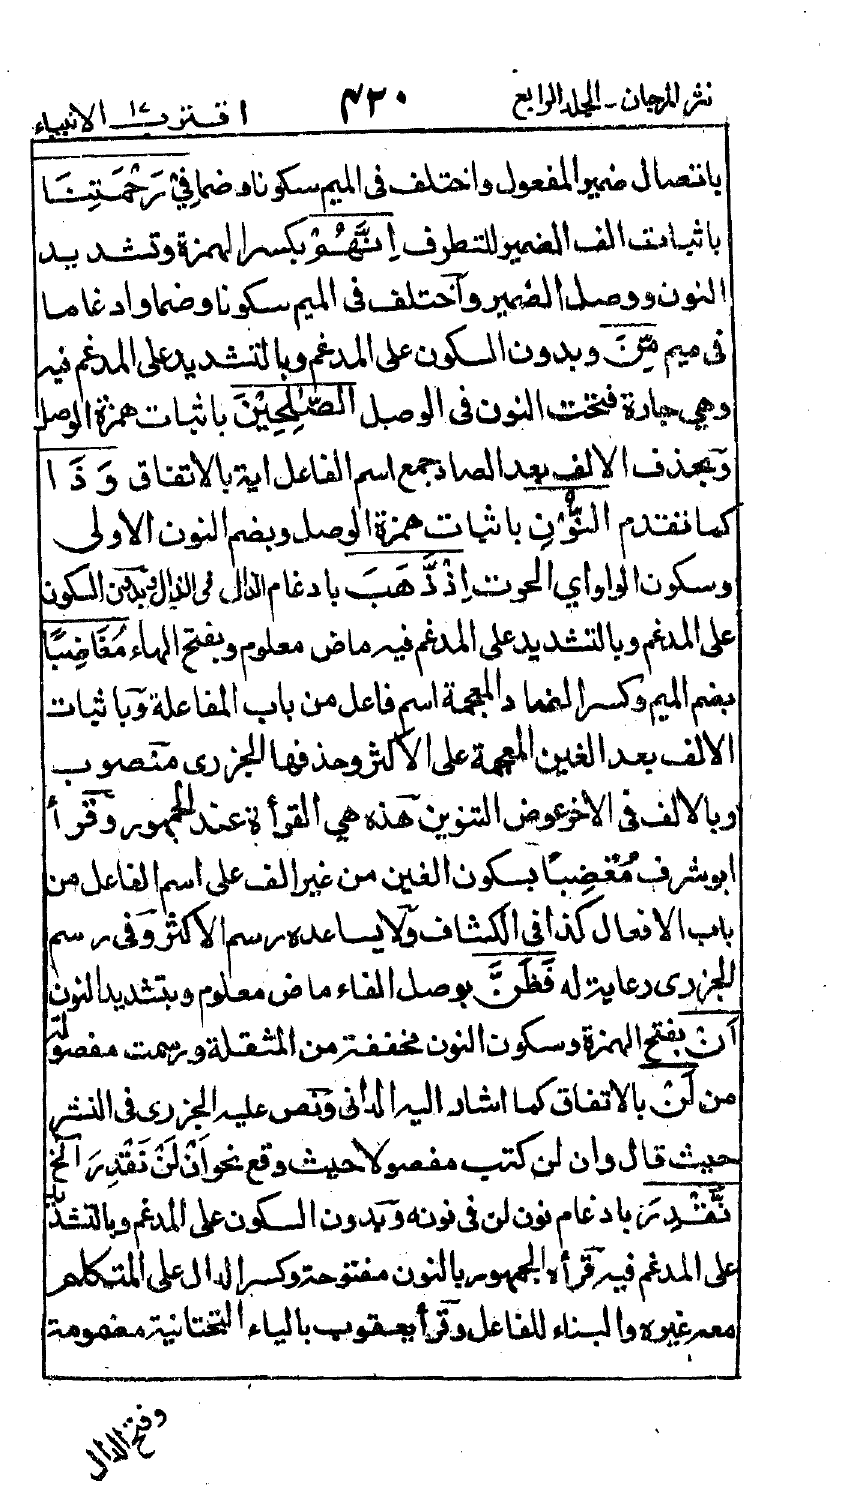 نثر المرجان - الجلد الرابع ٤٣٠ اقترب ١٧ الانبياء
باتصال ضمير المفعول واختلف فى الميم سكونا وضما فِيْ رَحْمَتِنَا
باثبات الف الضمير للتطرف اِنَّهُمْ بكسر الهمزة وتشديد
النون ووصل الضمير وآختلف فى الميم سكونا وضما وادغاما
فى ميم مِّنَ وبدون السكون على المدغم وبالتشديد على المدغم فيه
وهي جارة فتحت النون فى الوصل الصّٰلِحِيْنَ باثبات همزة الوصل
وبحذف الالف بعد الصاد جمع اسم الفاعل اية بالاتفاق وَذَا
كما تقدم النُّوْنِ باثبات همزة الوصل وبضم النون الاولى
وسكون الواو اي الحوت اِذْ ذَّهَبَ بادغام الذال فى الذال وبدون السكون
على المدغم وبالتشديد على المدغم فيه ماض معلوم وبفتح الهاء مُغَاضِبًا
بضم الميم وكسر الضاد المعجمة اسم فاعل من باب المفاعلة وباثبات
الالف بعد الغين المعجمة على الاكثر وحذفها الجزرى منصوب
وبالالف فى الاخر عوض التنوين هذه هي القرأة عند الجمهور وقرأ
ابو شرف مُغْضِبًا بسكون الغين من غير الف على اسم الفاعل من
باب الافعال كذا فى الكشاف ولا يساعده رسم الاكثر وفى رسم
الجزرى رعاية له فَظَنَّ بوصل الفاء ماض معلوم وبتشديد النون
اَنْ بفتح الهمزة وسكون النون مخففة من المثقلة ورسمت مفصولة
من لَنْ بالاتفاق كما اشار اليه الدانى ونص عليه الجزرى فى النشر
حيث قال وان لن كتب مفصولا حيث وقع نحو اَنْ لَنْ نَقْدِرَ الخ
نَّقْدِرَ بادغام نون لن فى نونه وبدون السكون على المدغم وبالتشديد
على المدغم فيه قرأه الجمهور بالنون مفتوحة وكسر الدال على المتكلم
معه غيره والبناء للفاعل وقرأ يعقوب بالياء التحتانية مضمومة
وفتح الدال